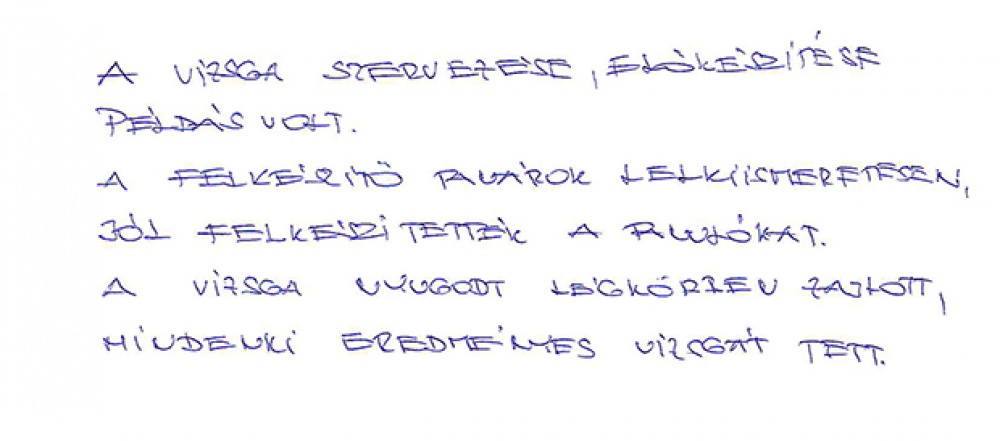 A VIZSGA SZERVEZÉSE, ELŐKÉSZÍTÉSE
PÉLDÁS VOLT.
A FELKÉSZÍTŐ TANÁROK LELKIISMERETESEN,
JÓL FELKÉSZÍTETTÉK A TANULÓKAT.
A VIZSGA NYUGODT LÉGKÖRBEN ZAJLOTT,
MINDENKI EREDMÉNYES VIZSGÁT TETT.